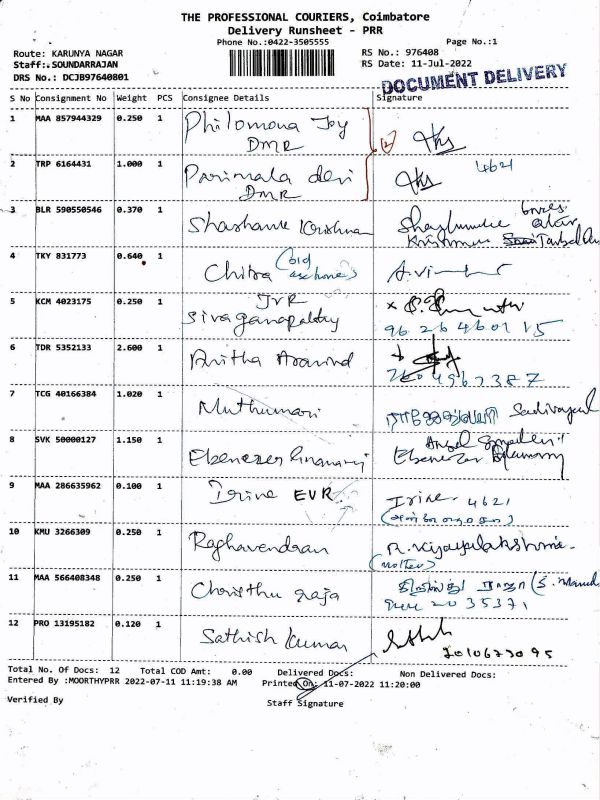 THE PROFESSIONAL COURIERS, Coimbatore
Delivery Runsheet - PRR
Phone No.:0422-3505555
Page No.:1
Route: KARUNYA NAGAR
RS No.: 976408
Staff: SOUNDARRAJAN
RS Date: 11-Jul-2022
DRS No.: DCJB97640801
DOCUMENT DELIVERY
S No Consignment No Weight PCS Consignee Details Signature
1 MAA 857944329 0.250 1 Philomona Joy
DMR
2 TRP 6164431 1.000 1 Parimala devi 4621
DMR
3 BLR 590550546 0.370 1 Shashank Krishna
4 TKY 831773 0.640 1 Chitra
5 KCM 4023175 0.250 1 JVR
Sivaganapathy
96 26 460115
6 TDR 5352133 2.600 1 Anitha Aravind
7604967387
7 TCG 40166384 1.020 1 Muthumari
8 SVK 50000127 1.150 1 Ebenezer
9 MAA 286635962 0.100 1 Irine EVR Irine 4621
10 KMU 3266309 0.250 1 Raghavendran R. Vijayalakshmi
(mother)
11 MAA 566408348 0.250 1 Christhu raja
2035371
12 PRO 13195182 0.120 1 Sathish kumar
Total No. Of Docs: 12 Total COD Amt: 0.00 Delivered Docs: Non Delivered Docs:
Entered By :MOORTHYPRR 2022-07-11 11:19:38 AM Printed On: 11-07-2022 11:20:00
Verified By
Staff Signature